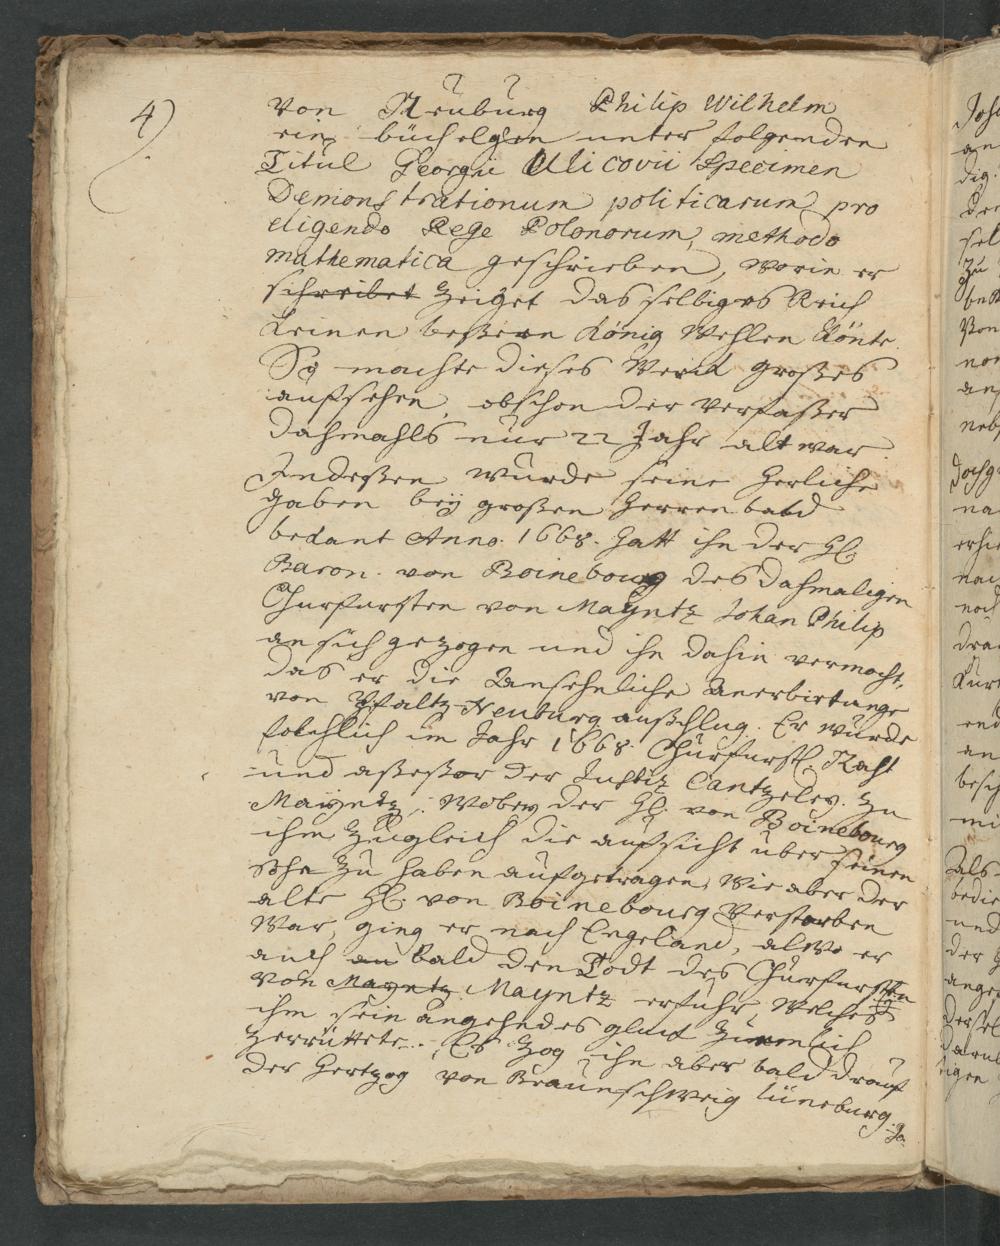 4)
von Neuburg Philip Wilhelm
ein büchelgen unter folgenden
Titul Georgii Ulicovii Specimen
Demonstrationum politicarum pro
eligendo Rege Polonorum, methodo
mathematica geschrieben, worin er
schreibet zeiget das selbiges Reich
keinen beßern König wehlen könte.
So machte dieses Werck großes
aufsehen, obschon der Verfaßer
dahmahls nur 22 Jahr alt war.
Indeßen wurde seine herliche
gaben beÿ großen Herren bald
bekant Anno. 1668. hatt ihn der H.
Baron. von Boinebourg des dahmaligen
Churfursten von Mayntz Johan Philip
an sich gezogen und ihn dahin vermocht,
das er die ansehnliche anerbietunge
von Pfaltz-Neuburg außschlug. Er wurde
folchlich im Jahr 1668. Churfurstl. Raht
und aßeßor der Justiz Cantzeley. zu
Mayntz, wobey der H. von Boinebourg
ihm zugleich die aufsicht über seinen
Sohn zu haben aufgetragen, wie aber der
alte H. von Boinebourg verstorben
war, ging er nach Engeland, alwo er
auch an bald den Todt des Churfursten
von Mayntz Mayntz erfuhr, welches
ihm sein angehendes gluck zimlich
zerrüttete. Es zog ihn aber bald drauf
der Hertzog von Braunschweig lüneburg.
Jo